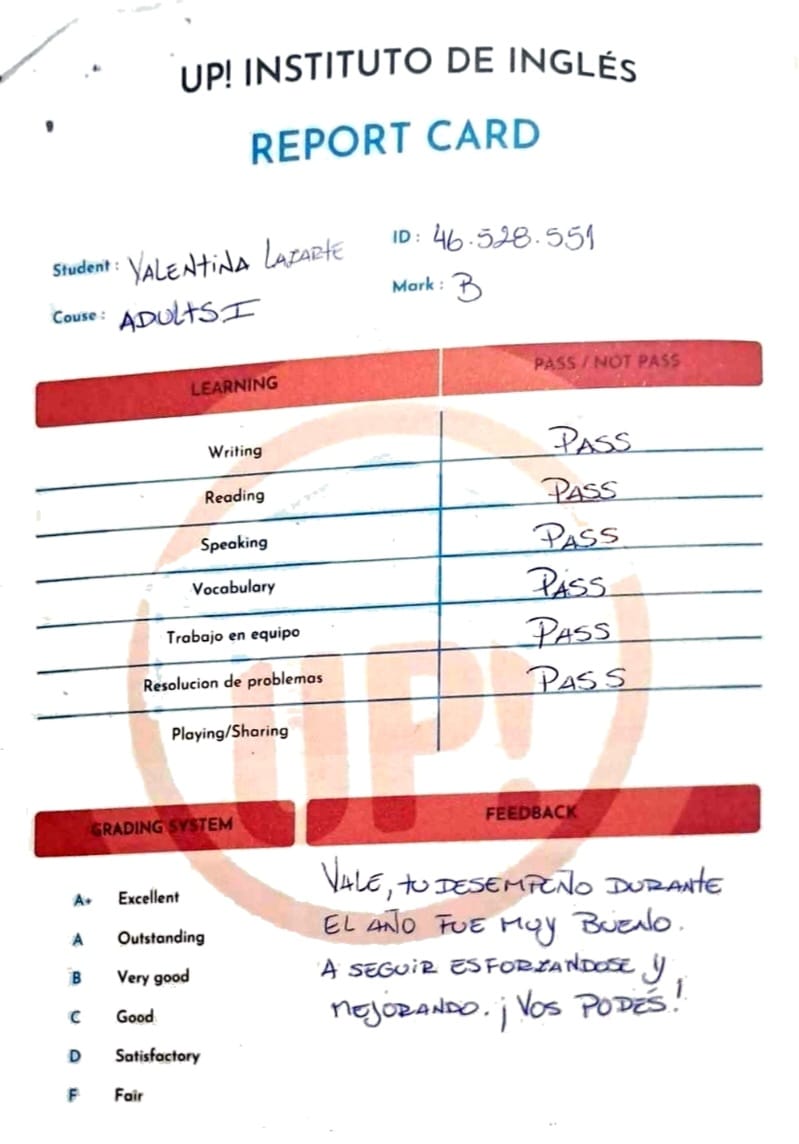 UP! INSTITUTO DE INGLÉS
REPORT CARD
Student: VALENTINA LAZARTE
ID: 46.528.551
Couse: ADULTS I
Mark: B
LEARNING PASS / NOT PASS
Writing PASS
Reading PASS
Speaking PASS
Vocabulary PASS
Trabajo en equipo PASS
Resolucion de problemas PASS
Playing/Sharing
UP!
GRADING SYSTEM
A+ Excellent
A Outstanding
B Very good
C Good
D Satisfactory
F Fair
FEEDBACK
VALE, tU DESEMPEÑO DURANTE
EL AÑO FUE MUY BUENO.
A SEGUIR ESFORZANDOSE Y
MEJORANDO. ¡VOS PODÉS!